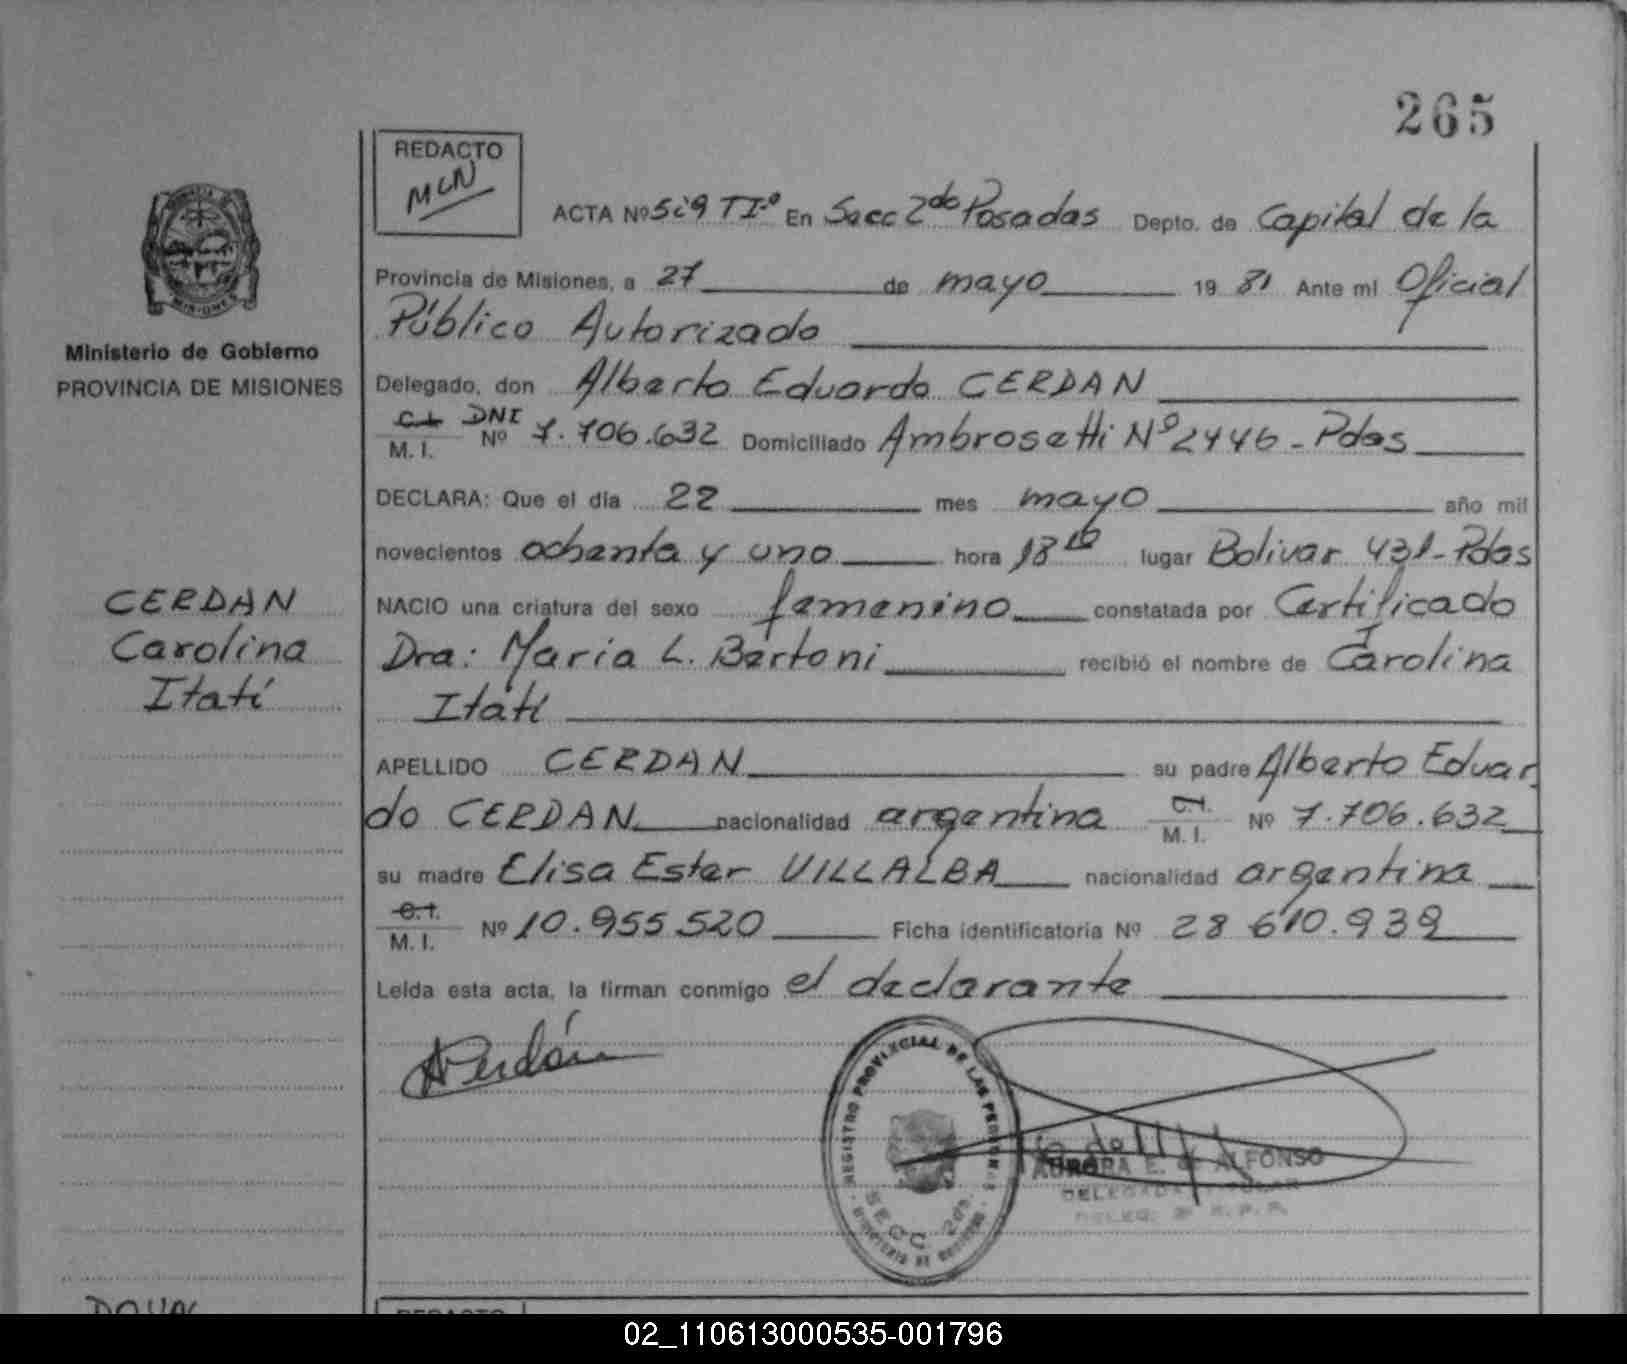 265
REDACTO
MCN
ACTA Nº 529 TIº En Secc 2do Posadas Depto. de Capital de la
Provincia de Misiones, a 27 de mayo 19 81 Ante mi Oficial
Público Autorizado
Delegado, don Alberto Eduardo CERDAN
C.I. DNI
M. I. Nº 7.706.632 Domiciliado Ambrosetti Nº 2446 - Pdas
DECLARA: Que el día 22 mes mayo año mil
novecientos ochenta y uno hora 18 10 lugar Bolivar 431-Pdas
NACIO una criatura del sexo femenino constatada por Certificado
Dra: Maria L. Bertoni recibió el nombre de Carolina
Itatí
APELLIDO CERDAN su padre Alberto Eduar
do CERDAN nacionalidad argentina C.I. M. I. Nº 7.706.632
su madre Elisa Ester VILLALBA nacionalidad argentina
C.I. M. I. Nº 10.955.520 Ficha identificatoria Nº 28 610.939
Leida esta acta, la firman conmigo el declarante
ACerdán
REGISTRO PROVINCIAL DE LAS PERSONAS
SECC. 2da.
MINISTERIO DE GOBIERNO
AURORA E. de ALFONSO
DELEGADA TITULAR
DELEG. 2ª R.P.P.
MISIONES
Ministerio de Gobierno
PROVINCIA DE MISIONES
CERDAN
Carolina
Itatí
REDACTO
02_110613000535-001796